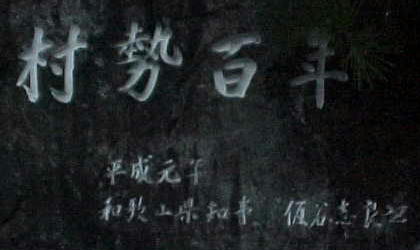 村勢百年
平成元年
和歌山県知事 仮谷志良